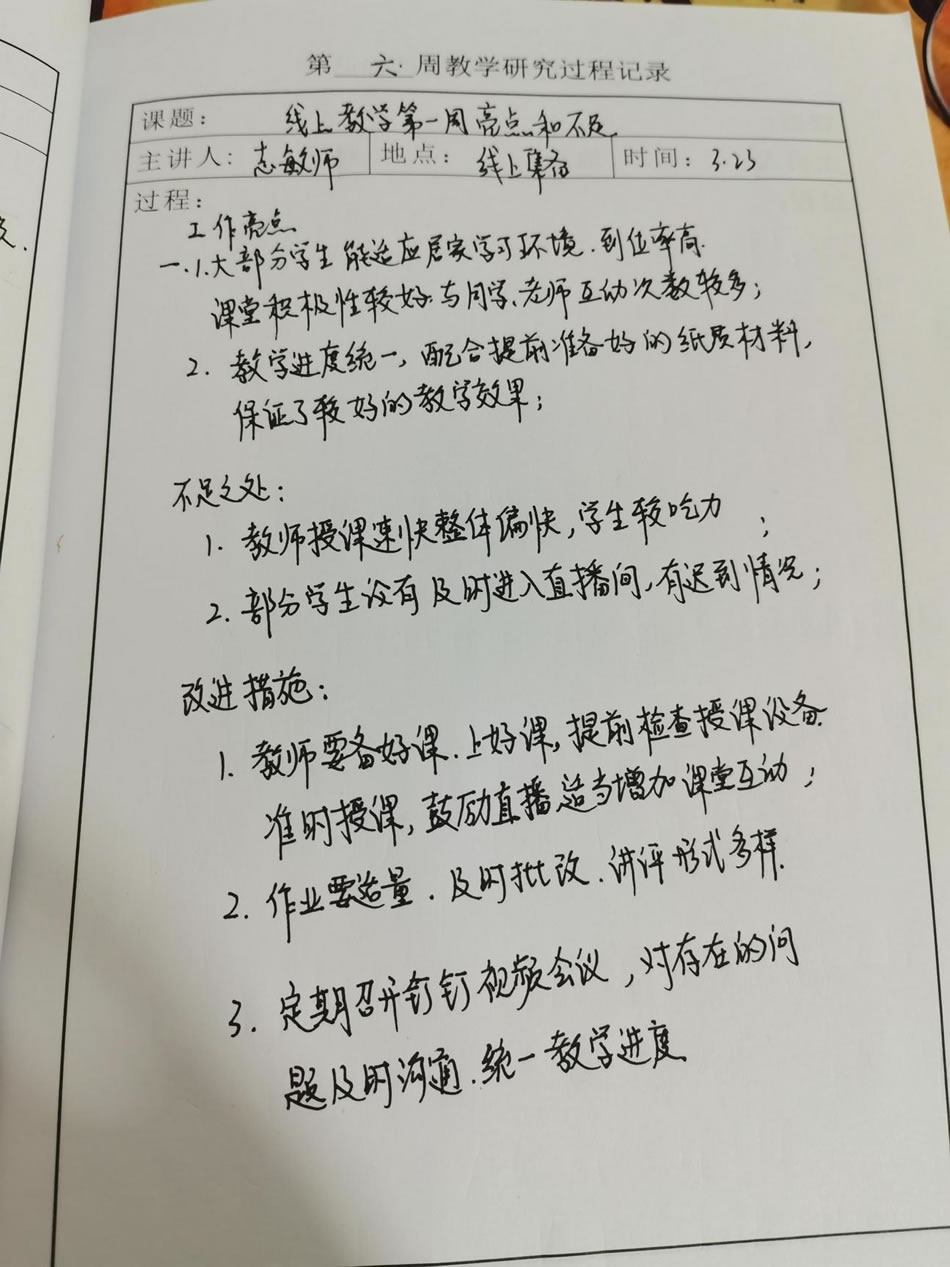 第 六 周教学研究过程记录
课题： 线上教学第一周亮点和不足
主讲人： 志敏师 地点： 线上集备 时间：3.23
过程：
工作亮点
一.1.大部分学生能适应居家学习环境.到位率高.
课堂积极性较好.与同学、老师互动次数较多；
2. 教学进度统一，配合提前准备好的纸质材料，
保证了较好的教学效果；
不足之处：
1. 教师授课速快整体偏快，学生较吃力；
2. 部分学生没有及时进入直播间，有迟到情况；
改进措施：
1. 教师要备好课.上好课，提前检查授课设备.
准时授课，鼓励直播适当增加课堂互动；
2. 作业要适量.及时批改.讲评形式多样.
3. 定期召开钉钉视频会议，对存在的问
题及时沟通.统一教学进度